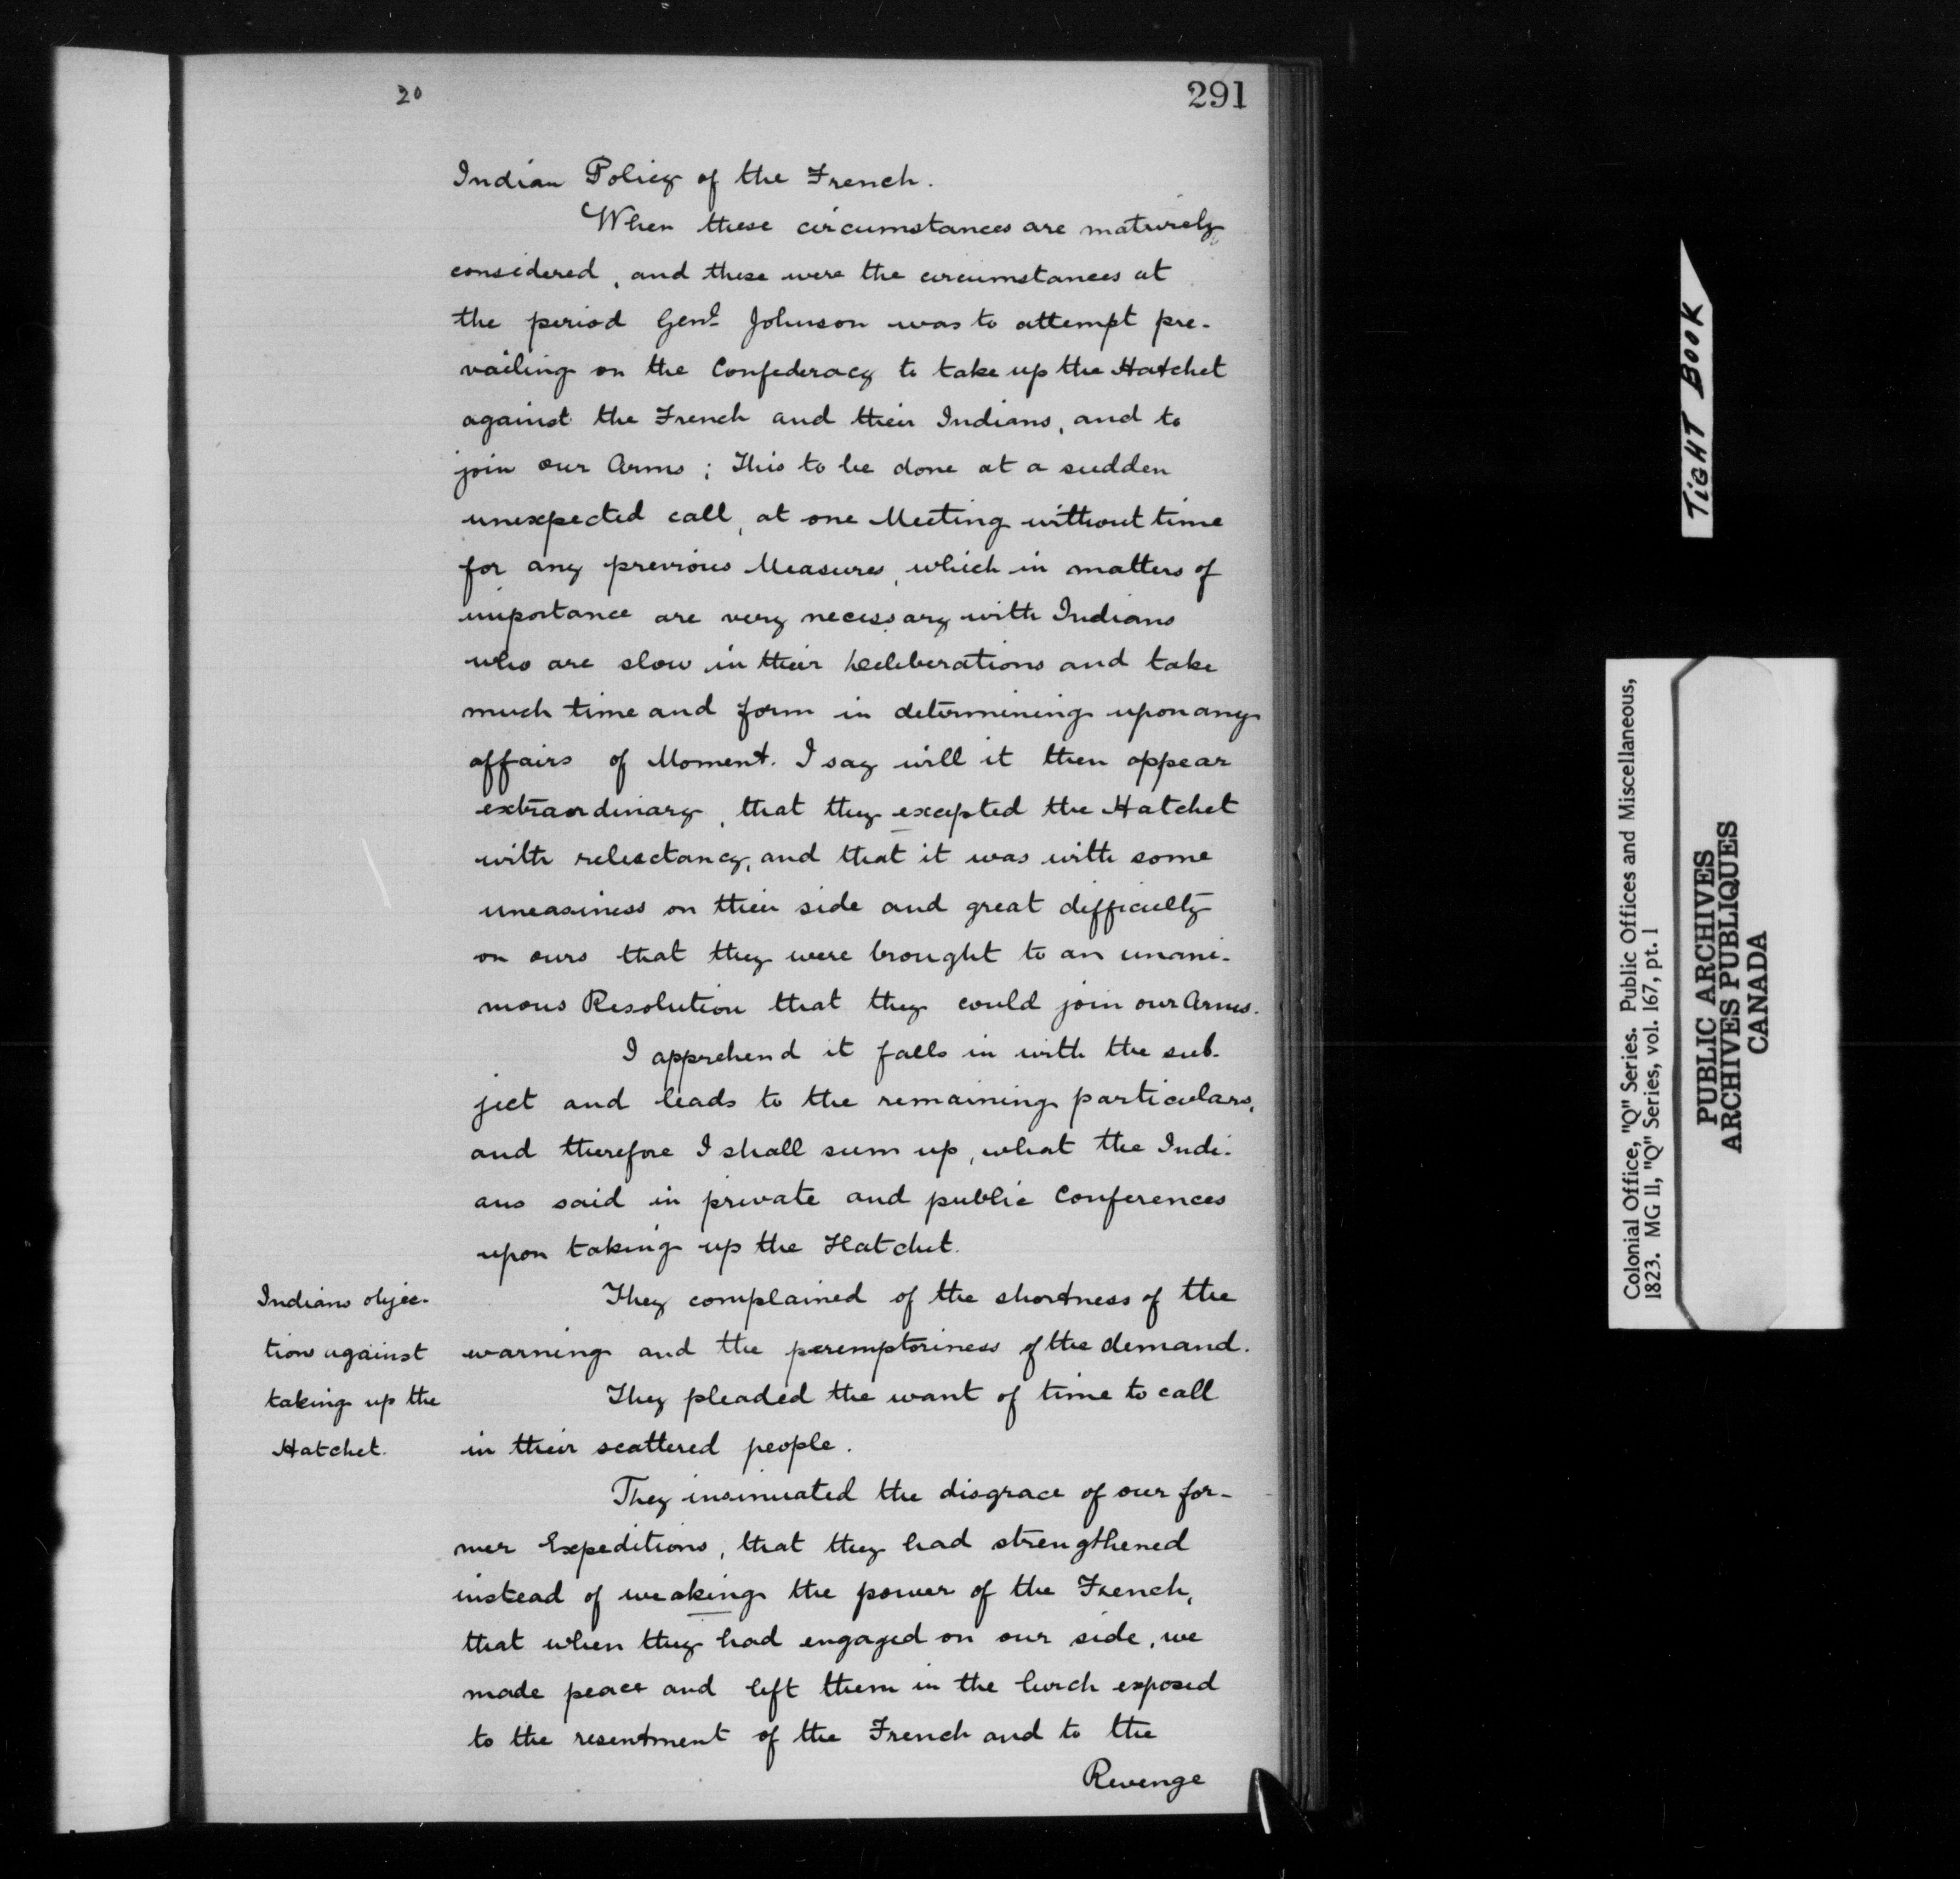 20
291
Indian Policy of the French.
When these circumstances are maturely
considered, and these were the circumstances at
the period Genl. Johnson was to attempt pre-
vailing on the Confederacy to take up the Hatchet
against the French and their Indians, and to
join our Arms; This to be done at a sudden
unexpected call, at one Meeting without time
for any previous Measures, which in matters of
importance are very necessary with Indians
who are slow in their Deliberations and take
much time and form in determining upon any
affairs of Moment. I say will it then appear
extraordinary, that they excepted the Hatchet
with reluctancy, and that it was with some
uneasiness on their side and great difficulty
on ours that they were brought to an unani-
mous Resolution that they could join our Arms.
I apprehend it falls in with the sub-
ject and leads to the remaining particulars,
and therefore I shall sum up, what the Indi-
ans said in private and public Conferences
upon taking up the Hatchet.
Indians objec-
tion against
taking up the
Hatchet.
They complained of the shortness of the
warning and the peremptoriness of the demand.
They pleaded the want of time to call
in their scattered people.
They insinuated the disgrace of our for-
mer Expeditions, that they had strengthened
instead of weaking the power of the French,
that when they had engaged on our side, we
made peace and left them in the lurch exposed
to the resentment of the French and to the
Revenge
TIGHT BOOK
Colonial Office, "Q" Series. Public Offices and Miscellaneous,
1823. MG 11, "Q" Series, vol. 167, pt. 1
PUBLIC ARCHIVES
ARCHIVES PUBLIQUES
CANADA